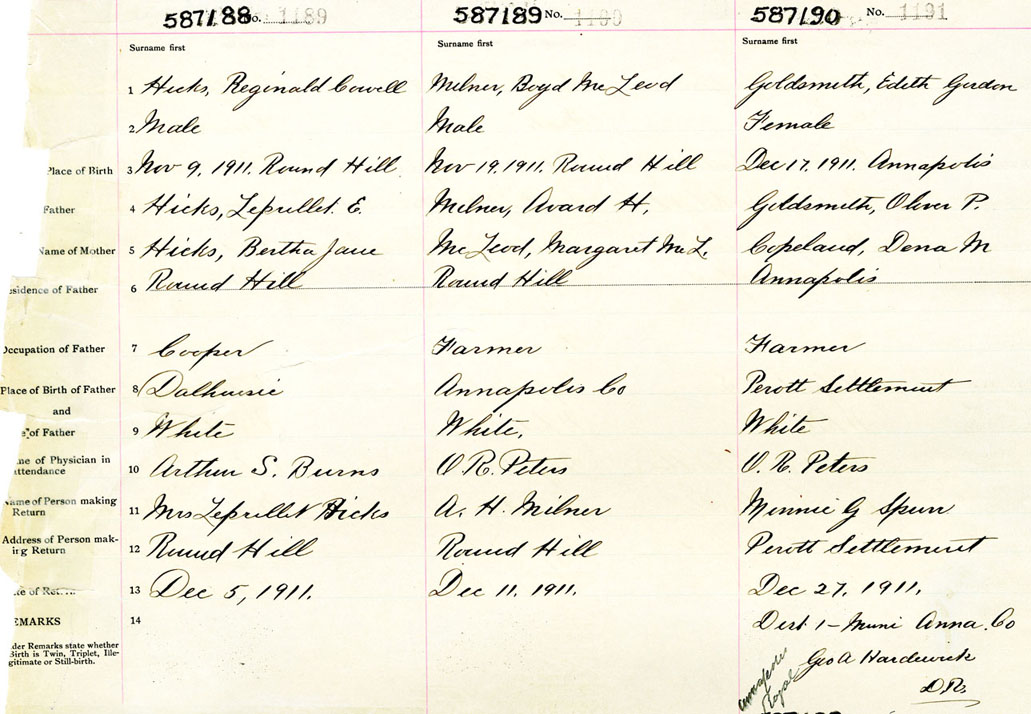 587188 No. 1189 587189 No. 1190 587190 No. 1191
Surname first Surname first Surname first
1 Hicks, Reginald Cowell Milner, Boyd McLeod Goldsmith, Edith Gordon
2 Male Male Female
Place of Birth 3 Nov 9, 1911. Round Hill Nov 19. 1911. Round Hill Dec 17. 1911. Annapolis
Father 4 Hicks, Leprillet. E. Milner, Avard H. Goldsmith, Oliver P.
Name of Mother 5 Hicks, Bertha Jane McLeod, Margaret McL. Copeland, Dena M
esidence of Father 6 Round Hill Round Hill Annapolis
Occupation of Father 7 Cooper Farmer Farmer
Place of Birth of Father 8 Dalhousie Annapolis Co Perott Settlement
and
of Father 9 White White, White
me of Physician in
ttendance 10 Arthur S. Burns O. R. Peters O. R. Peters
Name of Person making
Return 11 Mrs Leprillet Hicks A. H. Milner Minnie G Spurr
Address of Person mak-
ing Return 12 Round Hill Round Hill Perott Settlement
te of Ret 13 Dec 5, 1911. Dec 11. 1911. Dec 27, 1911.
EMARKS 14 Dist. 1 - Muni Anna. Co
der Remarks state whether
Birth is Twin, Triplet, Ille-
gitimate or Still-birth.
Geo A Hardwick
D.R.
Annapolis
Royal